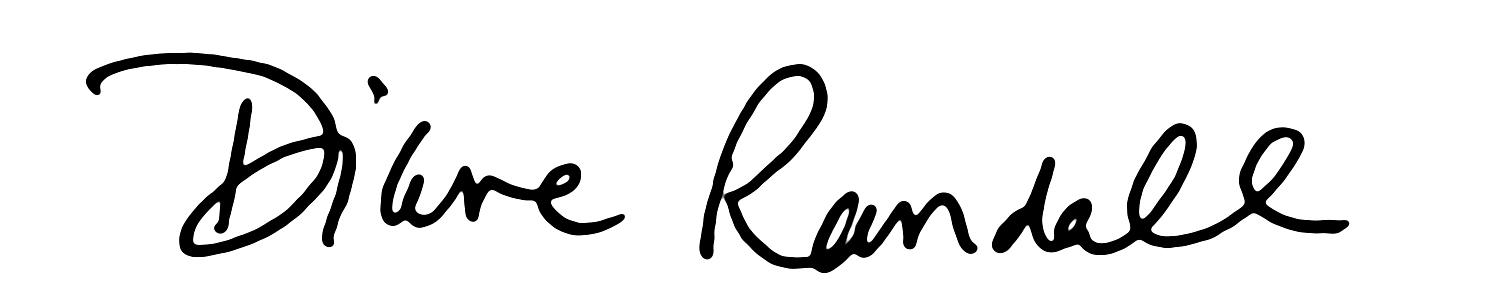 Diane Randall